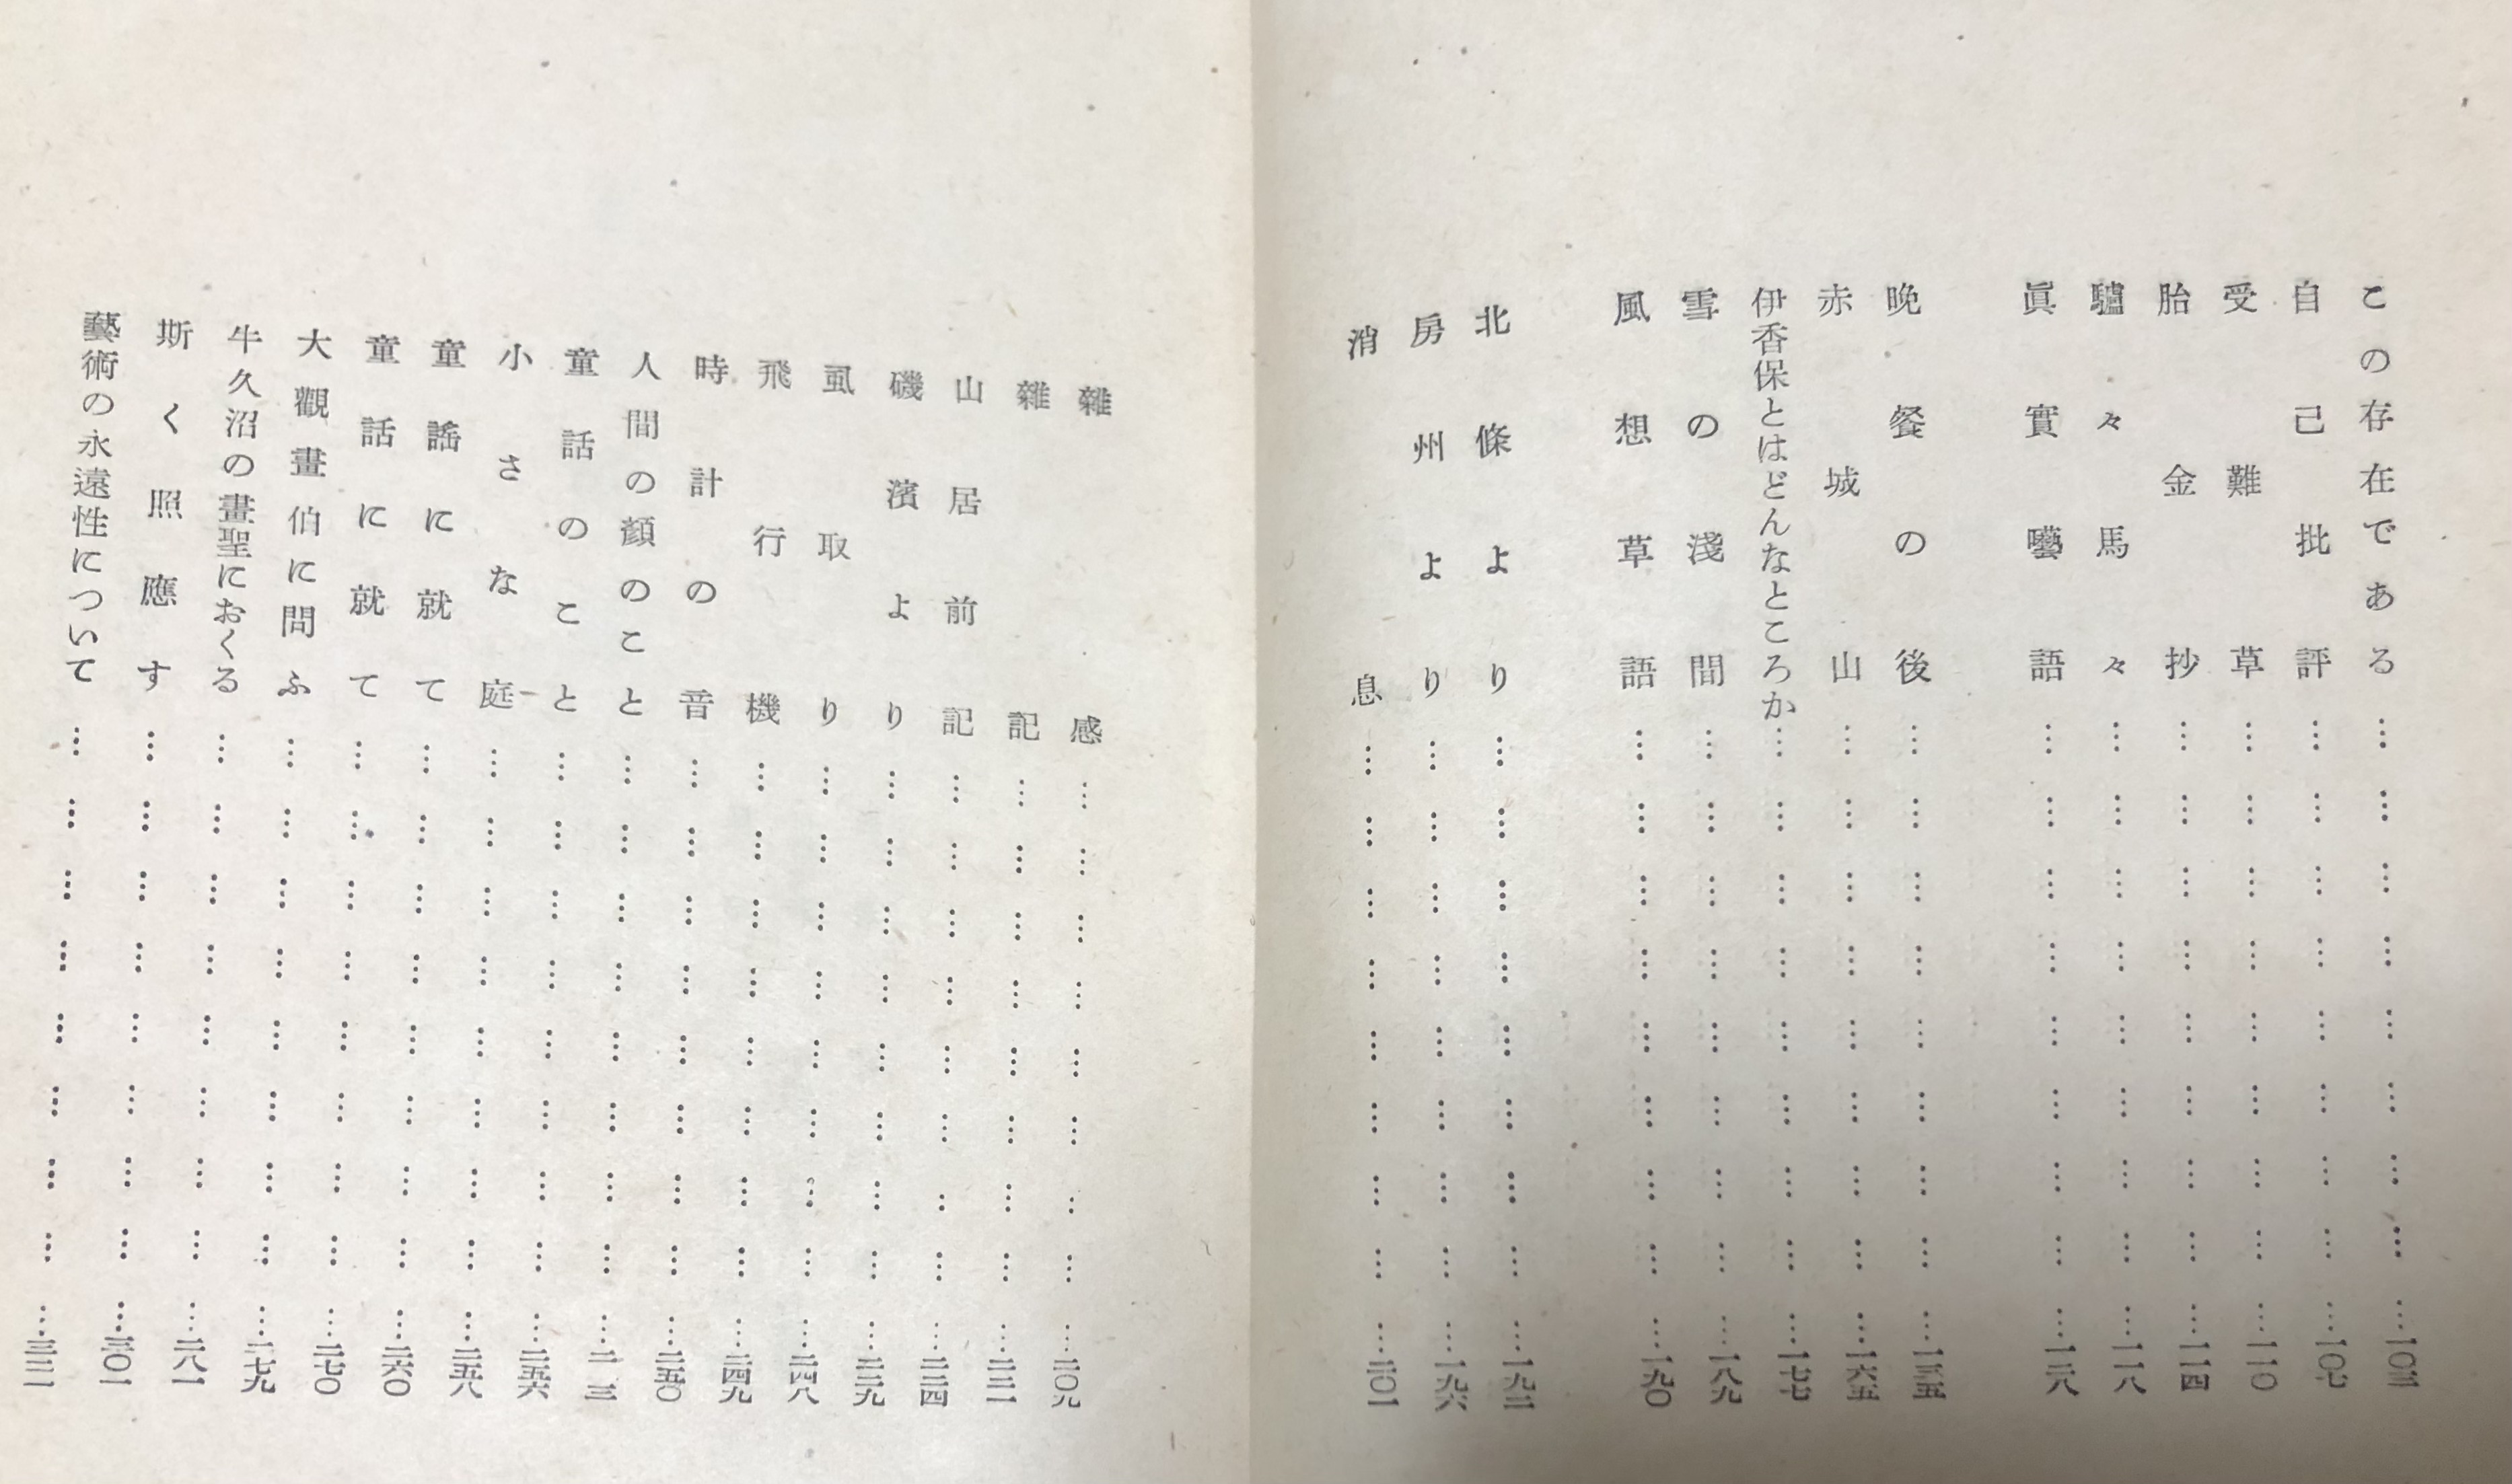 この存在である………………………一〇三
自己批評………………………一〇七
受難草………………………一一〇
胎金抄………………………一一四
驢々馬々………………………一一八
眞實囈語………………………一二八
晩餐の後………………………
赤城山………………………一六五
伊香保とはどんなところか………………………一七七
雪の淺間………………………一八九
風想草語………………………一九〇
北條より………………………
房州より………………………一九六
消息………………………二〇一
雜感………………………二〇九
雜記………………………
山居前記………………………
磯濱より………………………
虱取り………………………二四八
飛行機………………………二四九
時計の音………………………二五〇
人間の顏のこと………………………
童話のこと………………………二五六
小さな庭………………………
童謠に就て………………………二五八
童話に就て………………………二六〇
大觀畫伯に問ふ………………………二七〇
牛久沼の畫聖におくる………………………二七九
斯く照應す………………………
藝術の永遠性について………………………